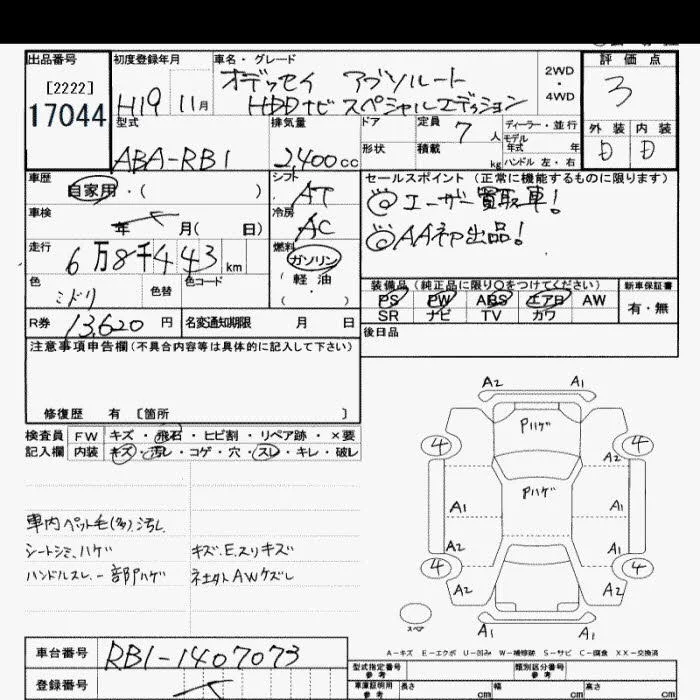 出品番号
[2222]
17044
初度登録年月
H19 11月
車名・グレード
オデッセイ アブソルート
HDDナビ スペシャルエディション
2WD
・
4WD
評価点
3
外装 内装
D D
型式
ABA-RB1
排気量
2,400cc
ドア
形状
定員 7人
積載 kg
ディーラー・並行
モデル
年式 年
ハンドル 左・右
車歴
自家用・( )
シフト
AT
セールスポイント (正常に機能するものに限ります)
◎ユーザー買取車!
◎AA初出品!
車検
年 月( 日)
冷房
AC
走行
6万8千443km
燃料
ガソリン
軽油
( ・ )
色
ミドリ
色替
色コード
装備品(純正品に限り○をつけてください)
PS PW ABS エアB AW
SR ナビ TV カワ
新車保証書
有・無
R券 13,620円
名変通知期限 月 日
後日品
注意事項申告欄(不具合内容等は具体的に記入して下さい)
修復歴 有 〔箇所 〕
検査員
記入欄
FW キズ・飛石・ヒビ割・リペア跡・×要
内装 キズ・汚レ・コゲ・穴・スレ・キレ・破レ
車内ペット毛(多).汚レ
シートシミ、ハゲ
ハンドルスレ.一部Pハゲ
キズ.E.スリキズ
社外AWケズレ
A2 A1
Pハゲ
4 4
A2
Pハゲ
A1 A1
A2 A2
4 4
A2 A2
スペア
A1 A1
A-キズ E-エクボ U-凹み W-補修跡 S-サビ C-腐食 XX-交換済
車台番号
RB1-1407073
登録番号
型式指定番号
参考
類別区分番号
参考
車庫証明用
参考
長さ cm
幅 cm
高さ cm